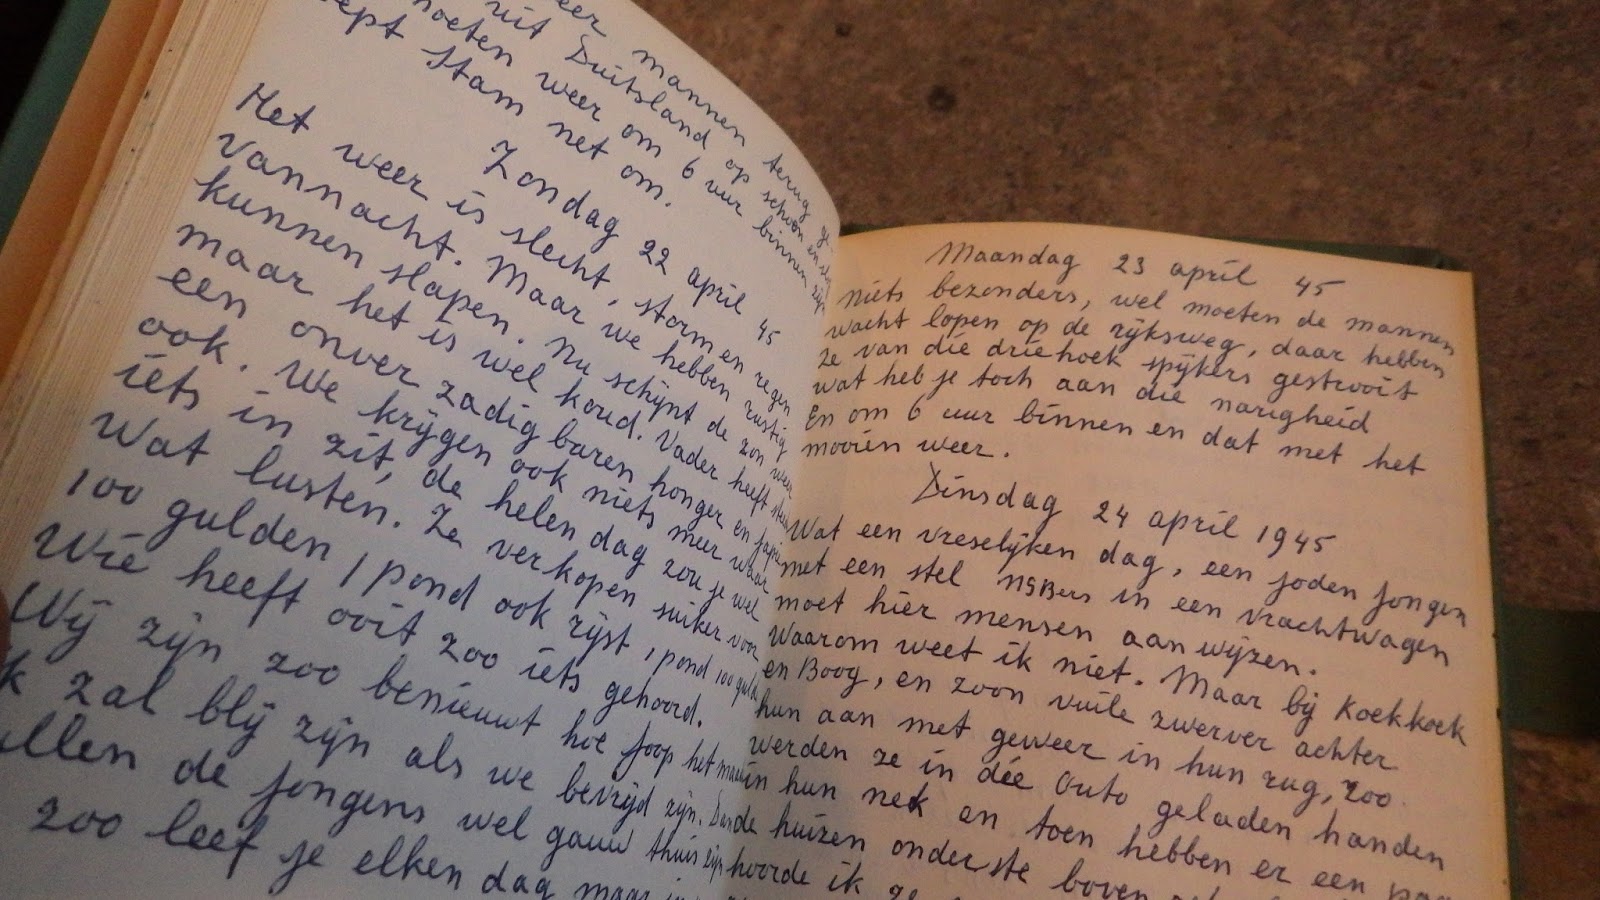 eer mannen terug
uit Duitsland op schoon en
moeten weer om 6 uur binnen zijn
stam net om.
Zondag 22 april 45
Het weer is slecht, storm en regen
vannacht. Maar we hebben rustig
kunnen slapen. Nu schijnt de zon weer
maar het is wel koud. Vader heeft
een onverzadigbaren honger en
ook. We krijgen ook niets meer waar
iets in zit, de helen dag zou je wel
Wat lusten. Ze verkopen suiker voor
100 gulden 1 pond ook rijst, 1 pond 100
Wie heeft ooit zoo iets gehoord.
Wij zijn zoo benieuwt hoe Joop het
k zal blij zijn als we bevrijd zijn. Dan
llen de jongens wel gauw thuis zijn
zoo leef je elken dag
Maandag 23 april 45
Niets bezonders, wel moeten de mannen
wacht lopen op de rijksweg, daar hebben
ze van die driehoek spijkers gestrooit
wat heb je toch aan die narigheid
En om 6 uur binnen en dat met het
mooien weer.
Dinsdag 24 april 1945
Wat een vreselijken dag, een joden jongen
met een stel NSBers in een vrachtwagen
moet hier mensen aanwijzen.
Waarom weet ik niet. Maar bij Koekkoek
en Boog, en zoon vuile zwerver achter
hun aan met geweer in hun rug, zoo
werden ze in die Outo geladen handen
in hun nek en toen hebben er een paar
de huizen onderste boven
hoorde ik ze